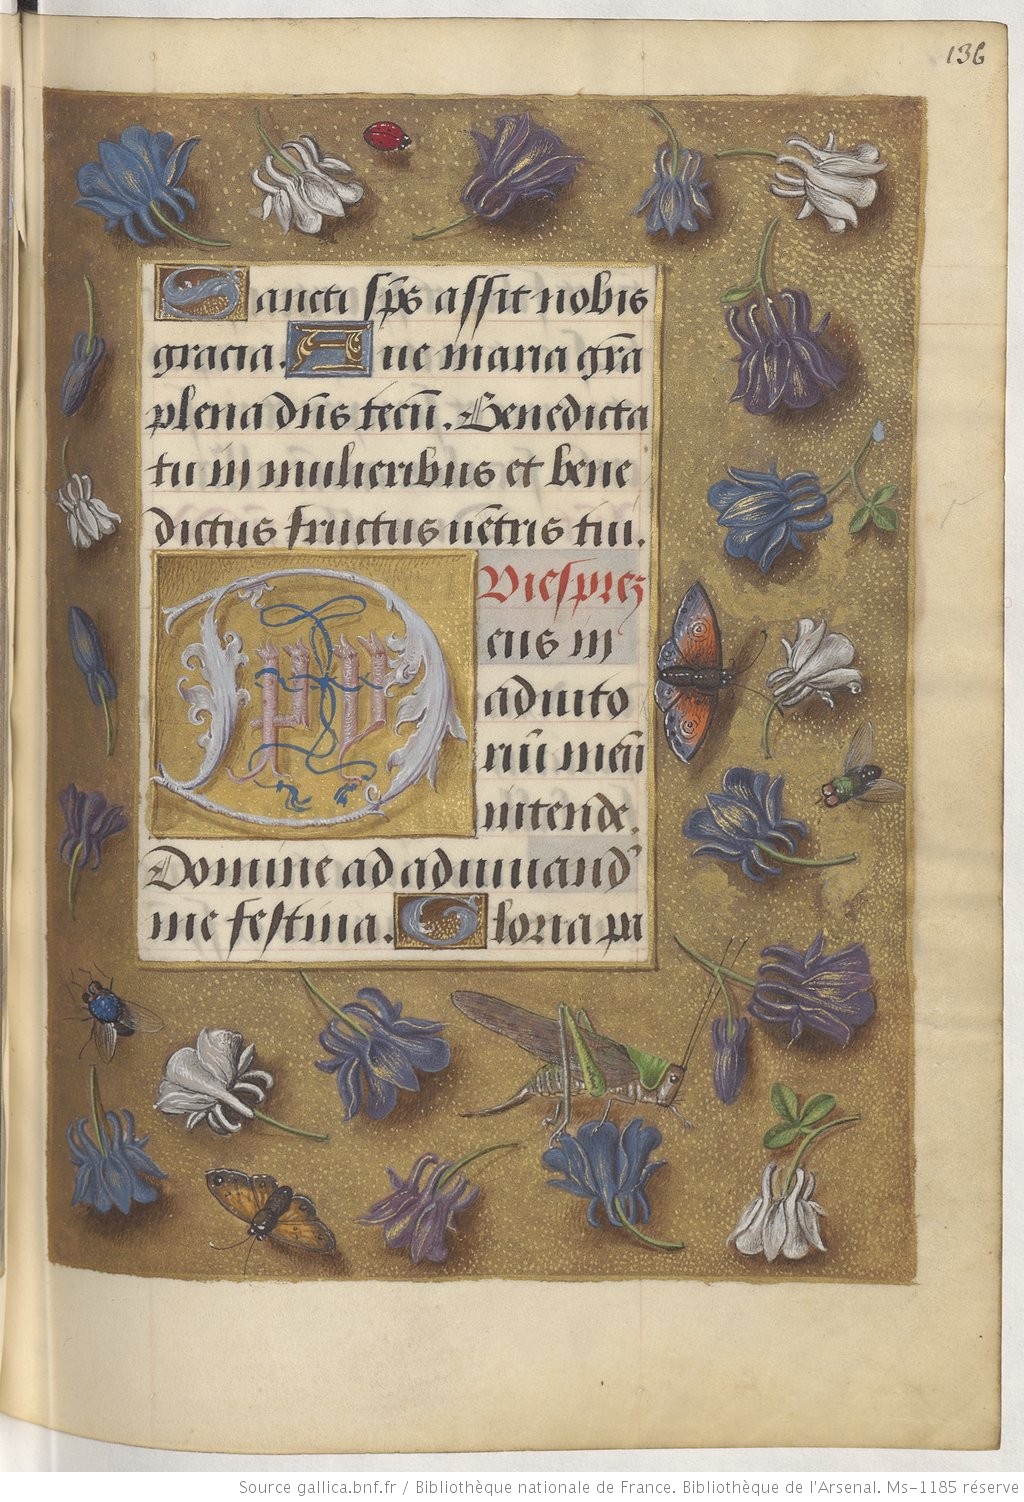 136
Sancti sp̄s assit nobis
gracia. Aue maria gr̄a
plena dn̄s tecū. Benedicta
tu in mulieribus et bene
dictus fructus uētris tui.
Viesprez
eus in
adiuto
riū meū
intende.
Domine ad adiuuand'
me festina. Gloria pa
Source gallica.bnf.fr / Bibliothèque nationale de France. Bibliothèque de l'Arsenal. Ms-1185 réserve